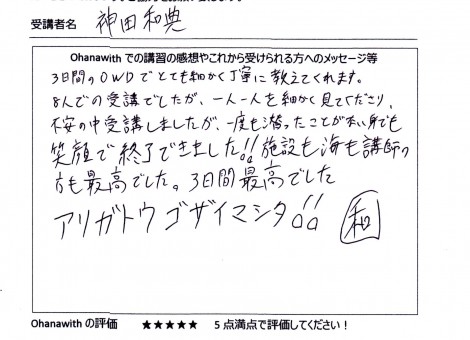 受講者名 神田和典
Ohanawith での講習の感想やこれから受けられる方へのメッセージ等
3日間のOWDでとても細かく丁寧に教えてくれます。
8人での受講でしたが、一人一人を細かく見てくださり、
不安の中受講しましたが、一度も潜ったことが無い身でも
笑顔で終了できました!!施設も海も講師の
方も最高でした。3日間最高でした
アリガトウゴザイマシタ!! 和
Ohanawith の評価 ★★★★★ 5 点満点で評価してください!